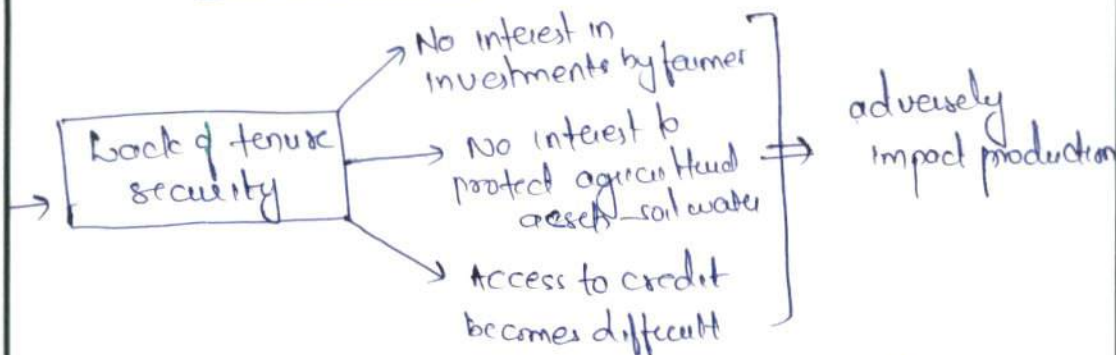 Lack of tenure
security
No interest in
investments by farmer
No interest to
protect agricultural
asset - soil water
Access to credit
becomes difficult
adversely
impact production